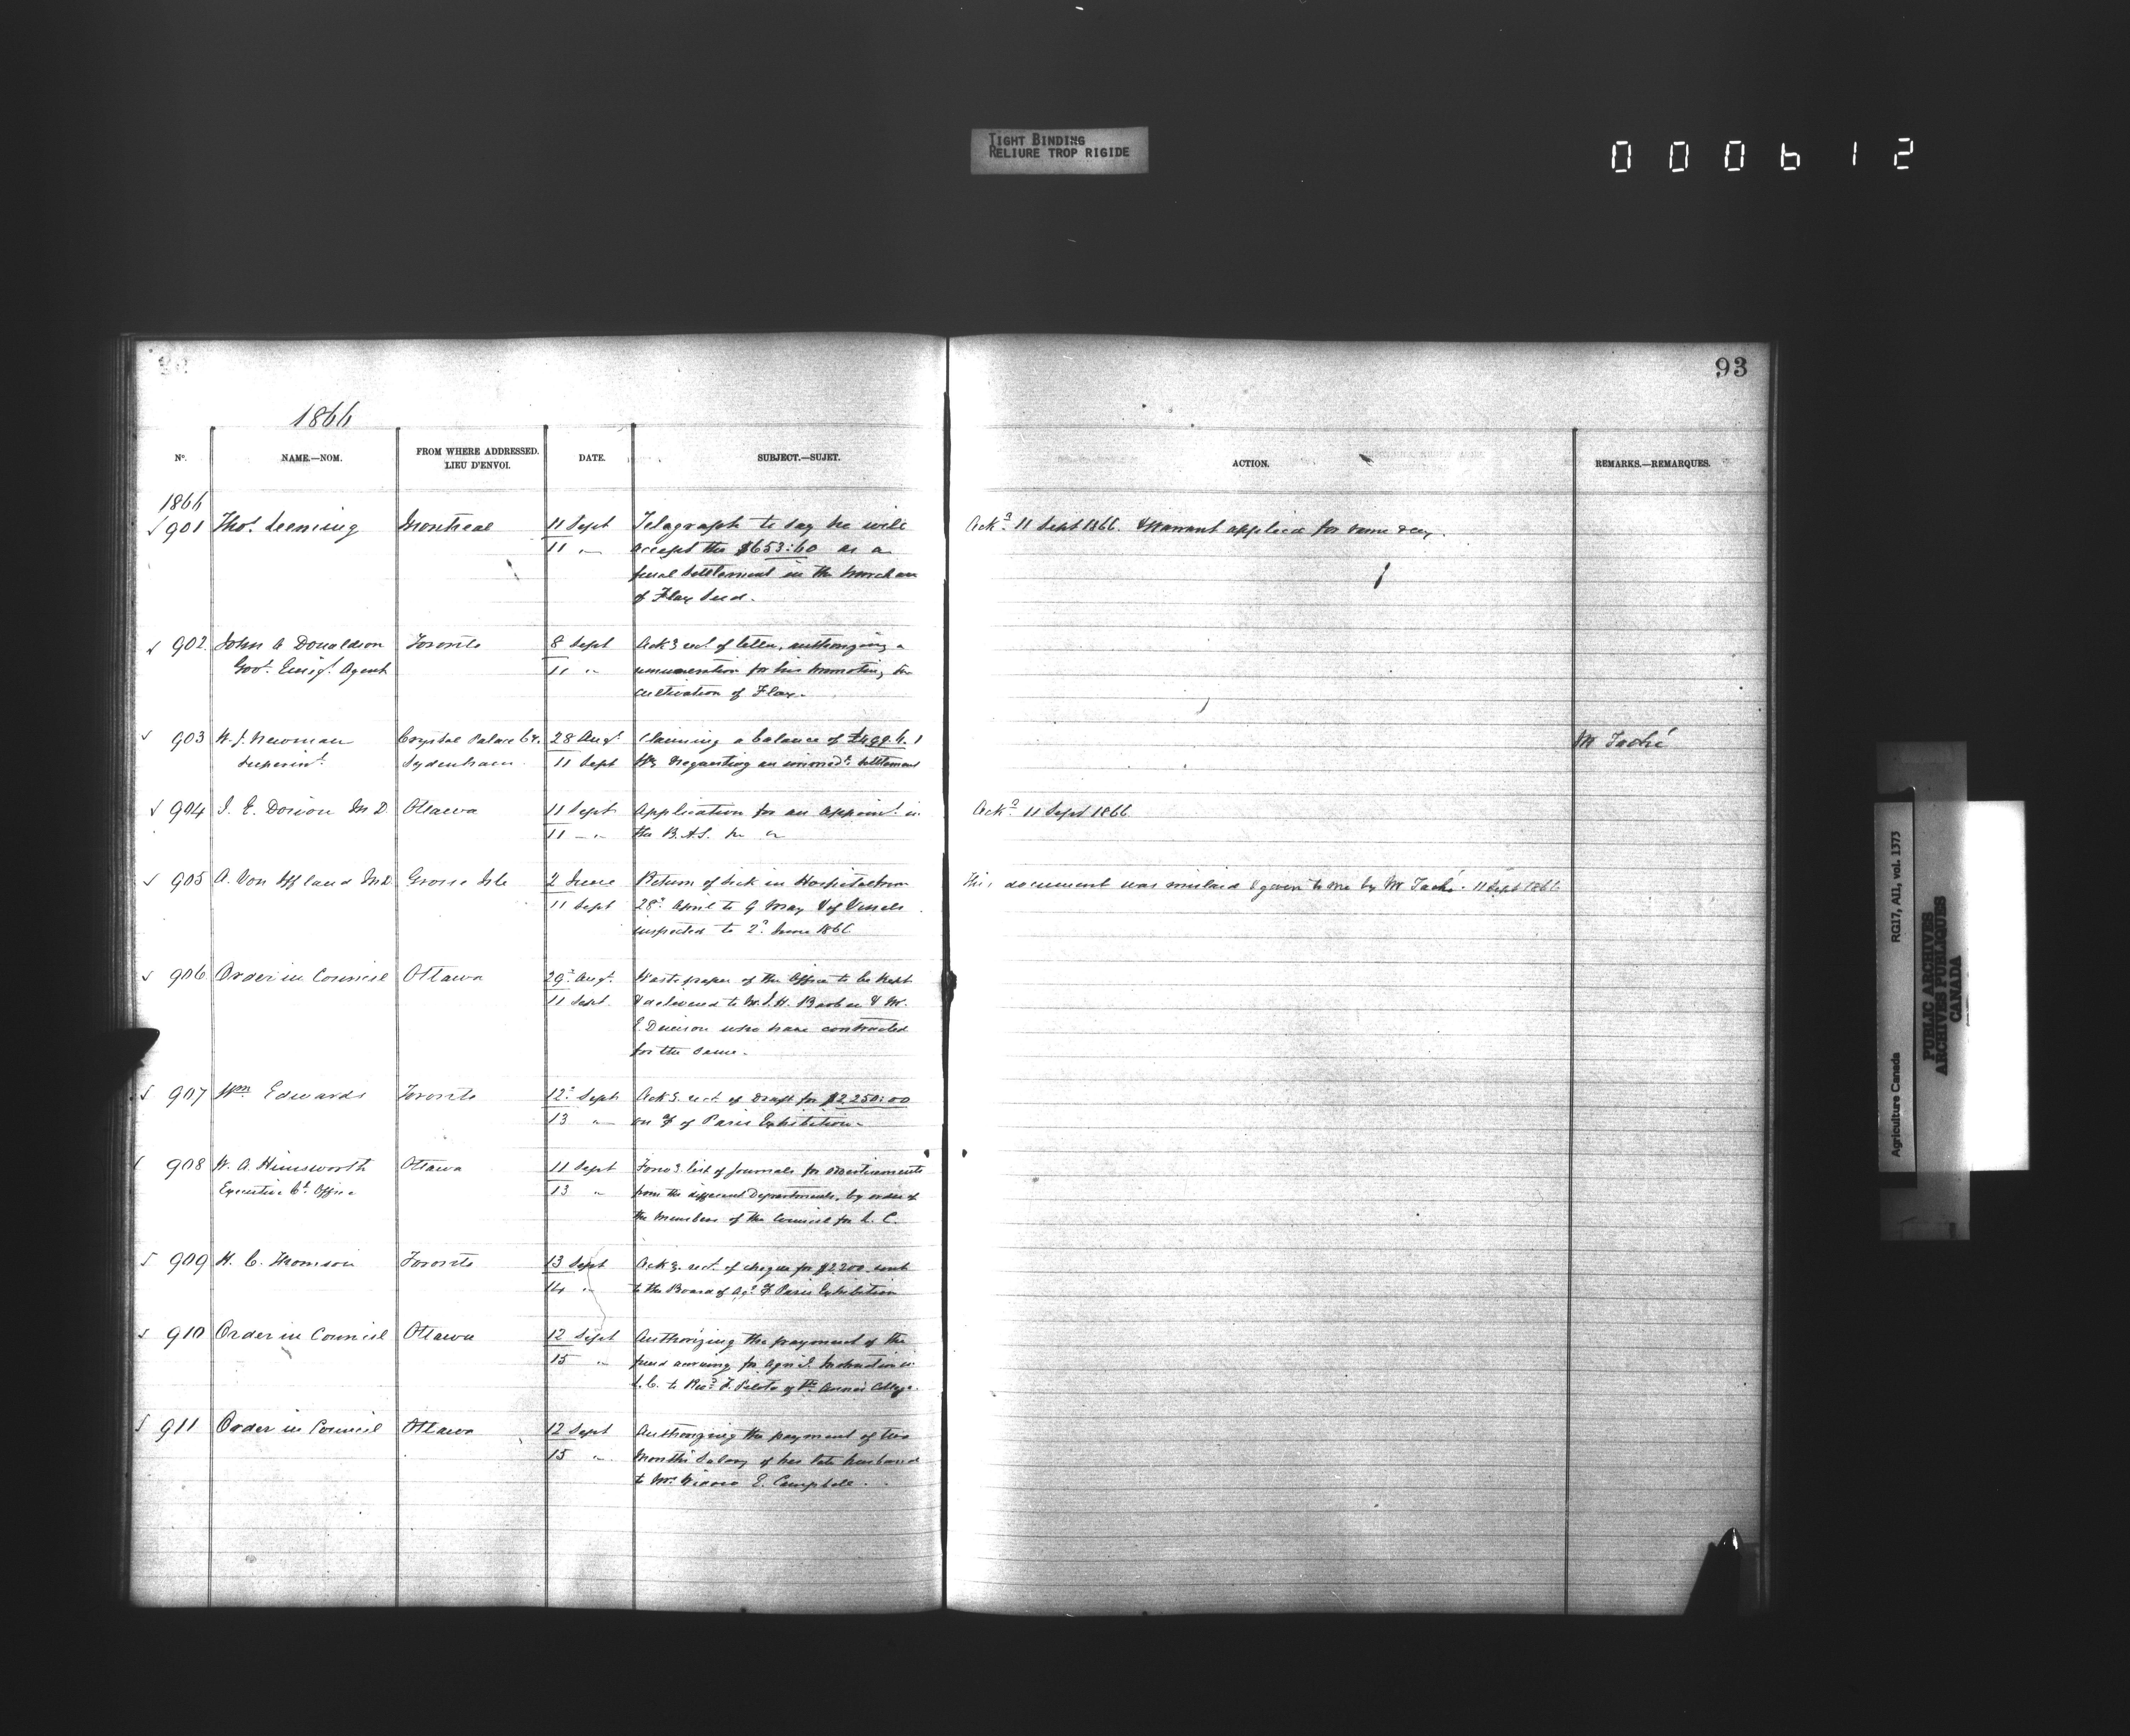 TIGHT BINDING
RELIURE TROP RIGIDE
000612
93
1866
No. NAME.—NOM. FROM WHERE ADDRESSED. LIEU D'ENVOI. DATE. SUBJECT.—SUJET. ACTION. REMARKS.—REMARQUES.
1866
901 Thos. Leeming Montreal 11 Sept Telegraph to say he will Ackd. 11 Sept 1866. & Warrant applied for same day.
11 " accept the $653:60 as a
final settlement in the
of Flax Seed.
902. John A Donaldson Toronto 8 Sept Ackg rect. of letter, authorizing a
Govt. Emigt. Agent 11 " remuneration for his promoting the
cultivation of Flax.
903 W. J. Newman Crystal Palace Co. 28 Augt. Claiming a balance of M Taché
Superint. Sydenham 11 Sept Requesting an immedt. settlement
904 J. E. Dorion M D. Ottawa 11 Sept. Application for an appoint. in Ackd. 11 Sept 1866
11 " the B.A.S.
905 A. Von Iffland M.D. Grosse Isle 2 June Return of Sick in Hospital from This document was mislaid & given to me by Mr Taché. 11 Sept 1866
11 Sept 28th April to 9 May & of Vessels
inspected to 2d June 1866
906 Order in Council Ottawa 29th Augt. Waste paper of the Office to be kept
11 Sept. & delivered to M. J. H. Barber & Mr.
E. Dennison who have contracted
for the same.
907 Wm Edwards Toronto 12th Sept Ackg. rect. of Draft for $2250:00
13 " on of Paris Exhibition
908 W. A. Himsworth Ottawa 11 Sept Forwg. list of journals for advertisements
Executive Cl. Office 13 " from the different Departments, by order of
the Members of the Council for L. C.
909 H. C. Thomson Toronto 13 Sept Ackg. rect. of cheque for $2200 sent
14 " to the Board of Agr. Paris Exhibition
910 Order in Council Ottawa 12 Sept Authorizing the payment of the
15 " fund accruing for Agril. Instruction in
L. C. to Revd. F. Pilote of St. Anne's College.
911 Order in Council Ottawa 12 Sept Authorizing the payment of two
15 " Months Salary of her late husband
to Mrs. Widow E. Campbell.
Agriculture Canada RG17, AI1, vol. 1373
PUBLIC ARCHIVES
ARCHIVES PUBLIQUES
CANADA